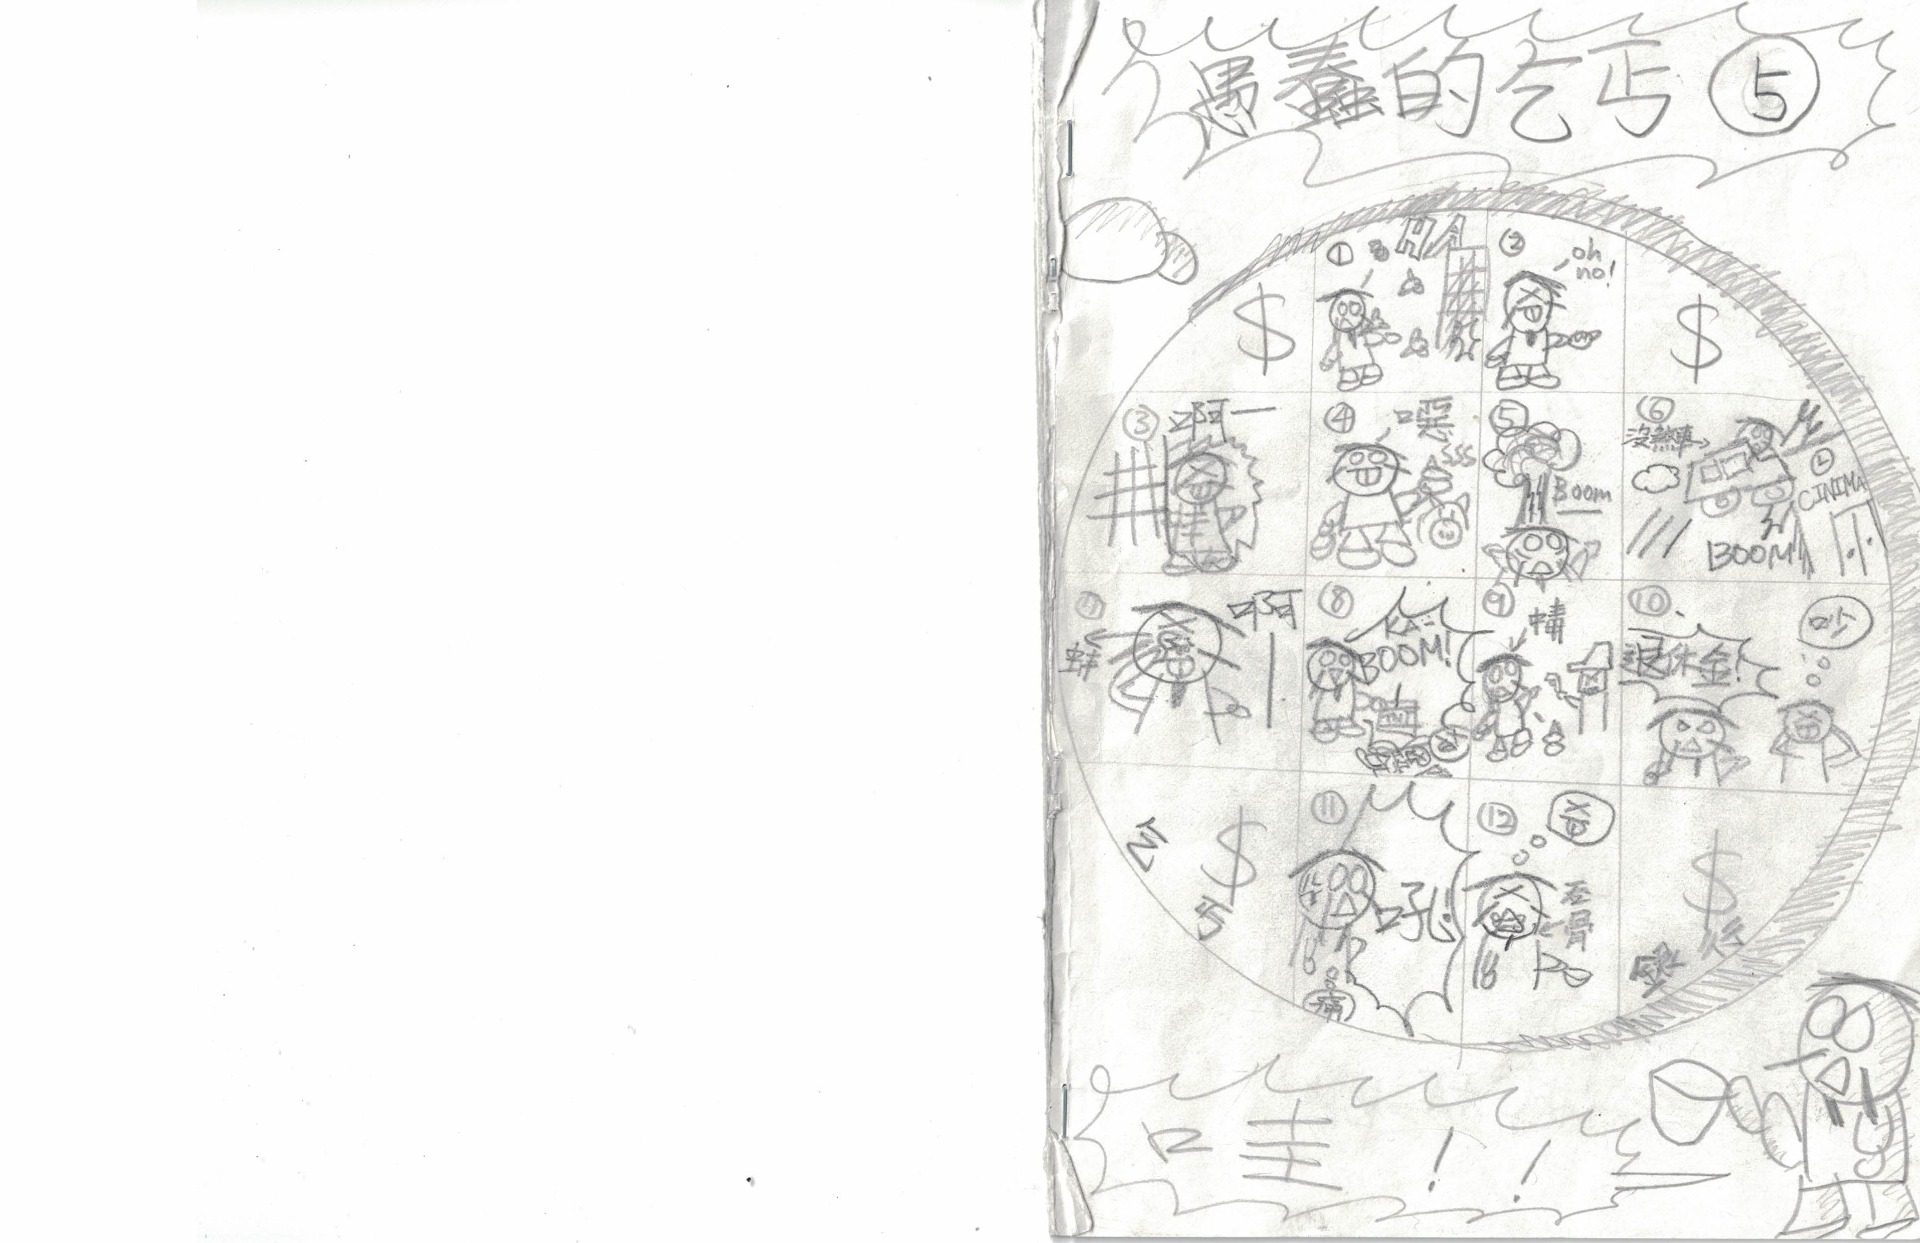 愚蠢的乞丐⑤
① HA
② oh no!
$
$
③ 啊一
④ 噁 SSS
⑤ Boom
⑥ 沒煞車→ CINIMA BOOM
⑦ 啊一
蚌
⑧ KA-BOOM! TNT
⑨ 中毒
⑩ 退休金! 吵
乞 $ 丐
⑪ 吼! 痛
⑫
$
哇!!